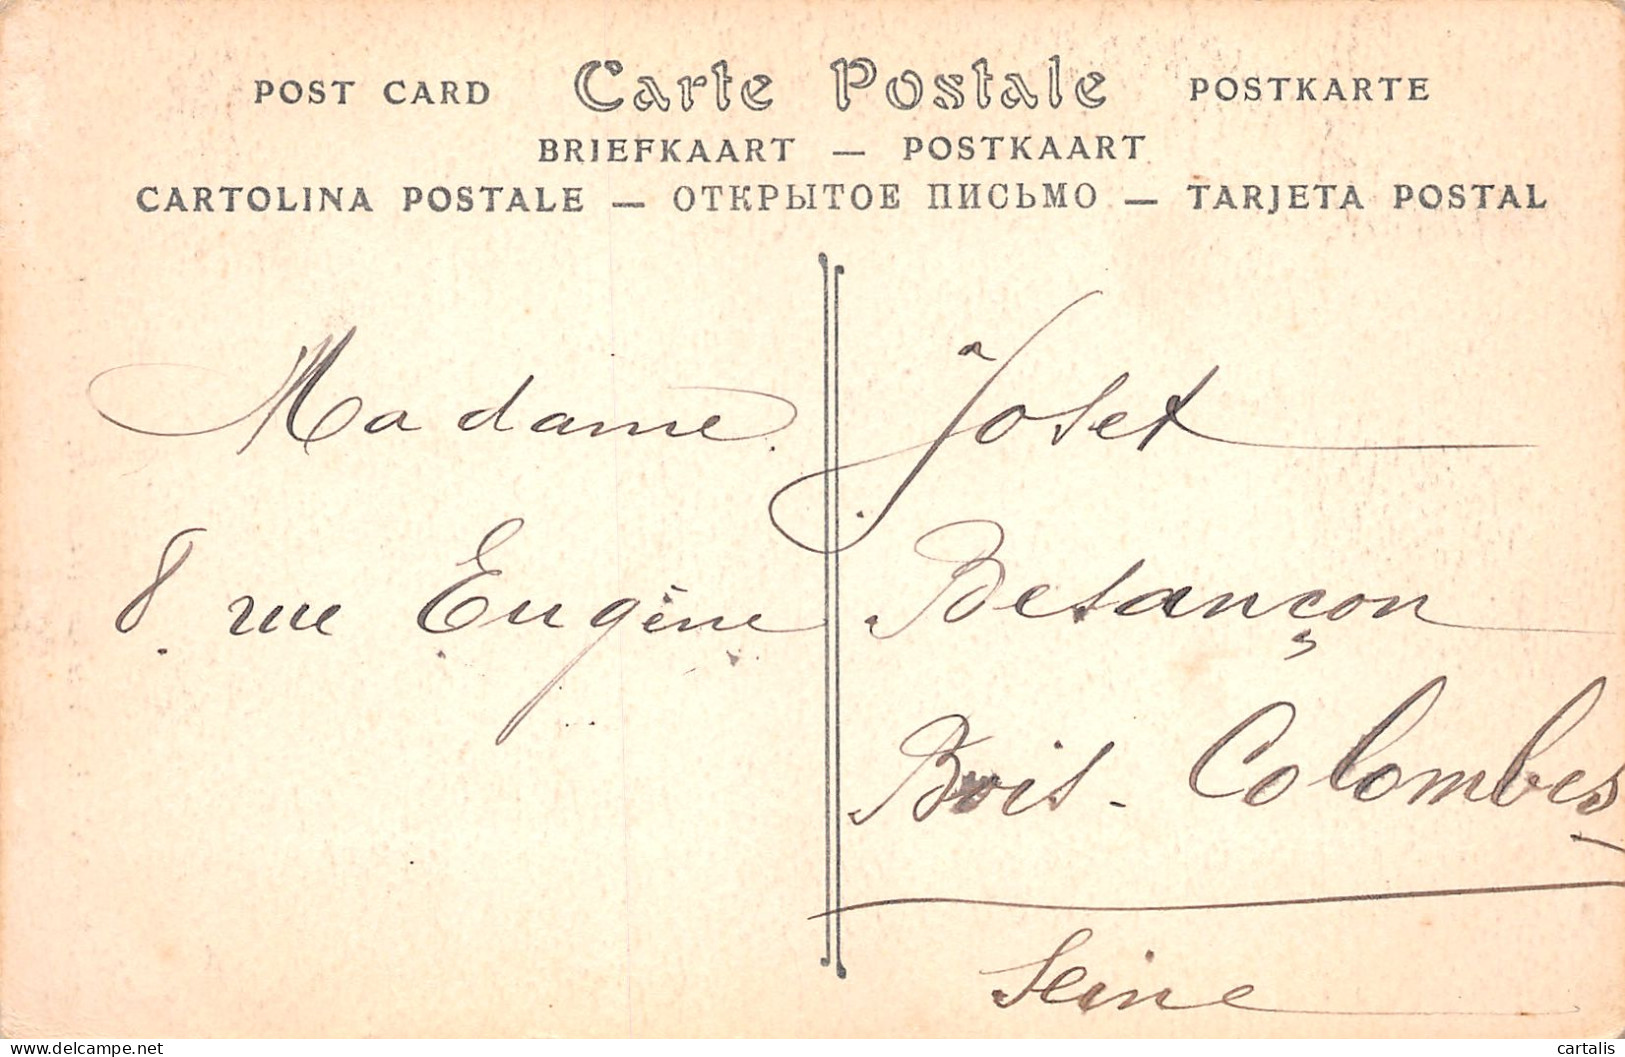 POST CARD Carte Postale POSTKARTE
BRIEFKAART — POSTKAART
CARTOLINA POSTALE — ОТКРЫТОЕ ПИСЬМО — TARJETA POSTAL
Madame Joset
8 rue Eugène Besançon
Bois-Colombes
Seine
cartalis
delcampe.net